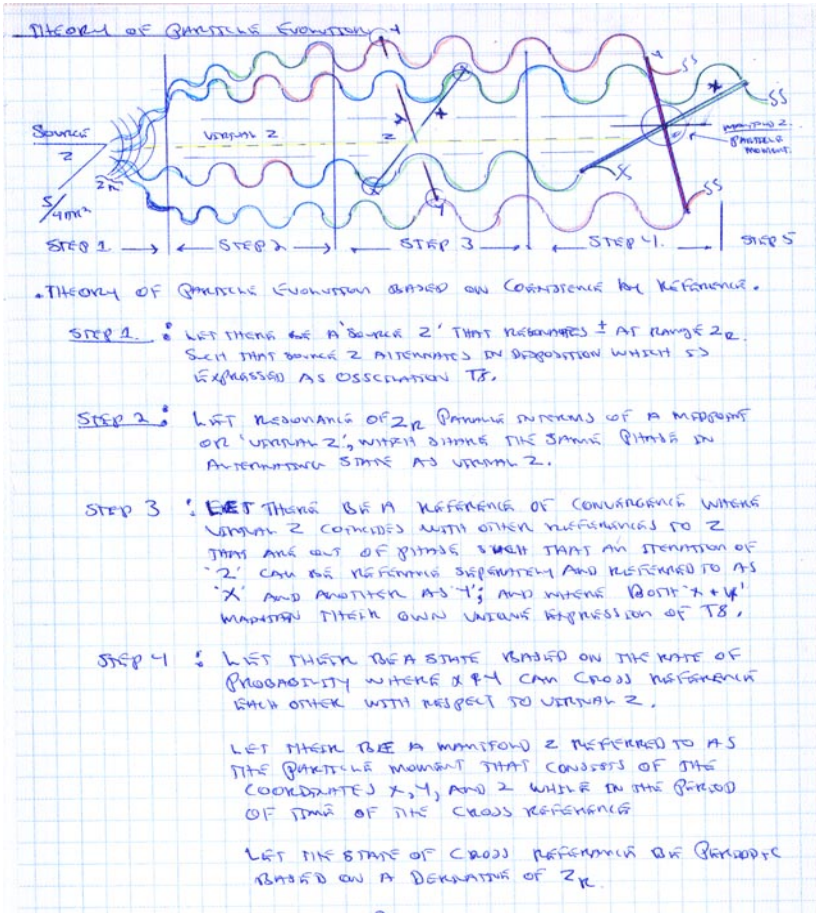 THEORY OF PARTICLE EVOLUTION
Y
SS
X
SOURCE
Z
VIRTUAL Z
Z
X
X
SS
MANIFOLD Z.
PARTICLE
MOMENT.
r
ZR
S/4πr²
X
Y
X
SS
STEP 1. STEP 2 STEP 3 STEP 4. STEP 5
. THEORY OF PARTICLE EVOLUTION BASED ON by REFERENCE.
STEP 1. : LET THERE BE A 'SOURCE Z' THAT RESONATES ± AT RANGE ZR.
SUCH THAT SOURCE Z ALTERNATES IN DISPOSITION WHICH IS
EXPRESSED AS OSSCILATION T8.
STEP 2 : LET RESONANCE OF ZR PARALLE INTERMS OF A MIDPOINT
OR 'VIRTUAL Z', WHICH SHARE THE SAME PHASE IN
ALTERNATING STATE AS VIRTUAL Z.
STEP 3 : LET THERE BE A REFERENCE OF CONVERGENCE WHERE
VIRTUAL Z COINCIDES WITH OTHER REFERENCES TO Z
THAT ARE OUT OF PHASE SUCH THAT AN ITERATION OF
'Z' CAN BE REFERENCE SEPERATELY AND REFERRED TO AS
'X' AND ANOTHER AS 'Y'; AND WHERE BOTH 'X + Y'
MAINTAIN THEIR OWN UNIQUE EXPRESSION OF T8.
STEP 4 : LET THEIR BE A STATE BASED ON THE RATE OF
PROBABILITY WHERE X & Y CAN CROSS REFERENCE
EACH OTHER WITH RESPECT TO VIRTUAL Z.
LET THEIR BE A MANIFOLD Z REFERRED TO AS
THE PARTICLE MOMENT THAT CONSISTS OF THE
COORDINATES X, Y, AND Z WHILE IN THE PERIOD
OF TIME OF THE CROSS REFERENCE
LET THE STATE OF CROSS REFERENCE BE PERIODIC
BASED ON A DERIVATIVE OF ZR.